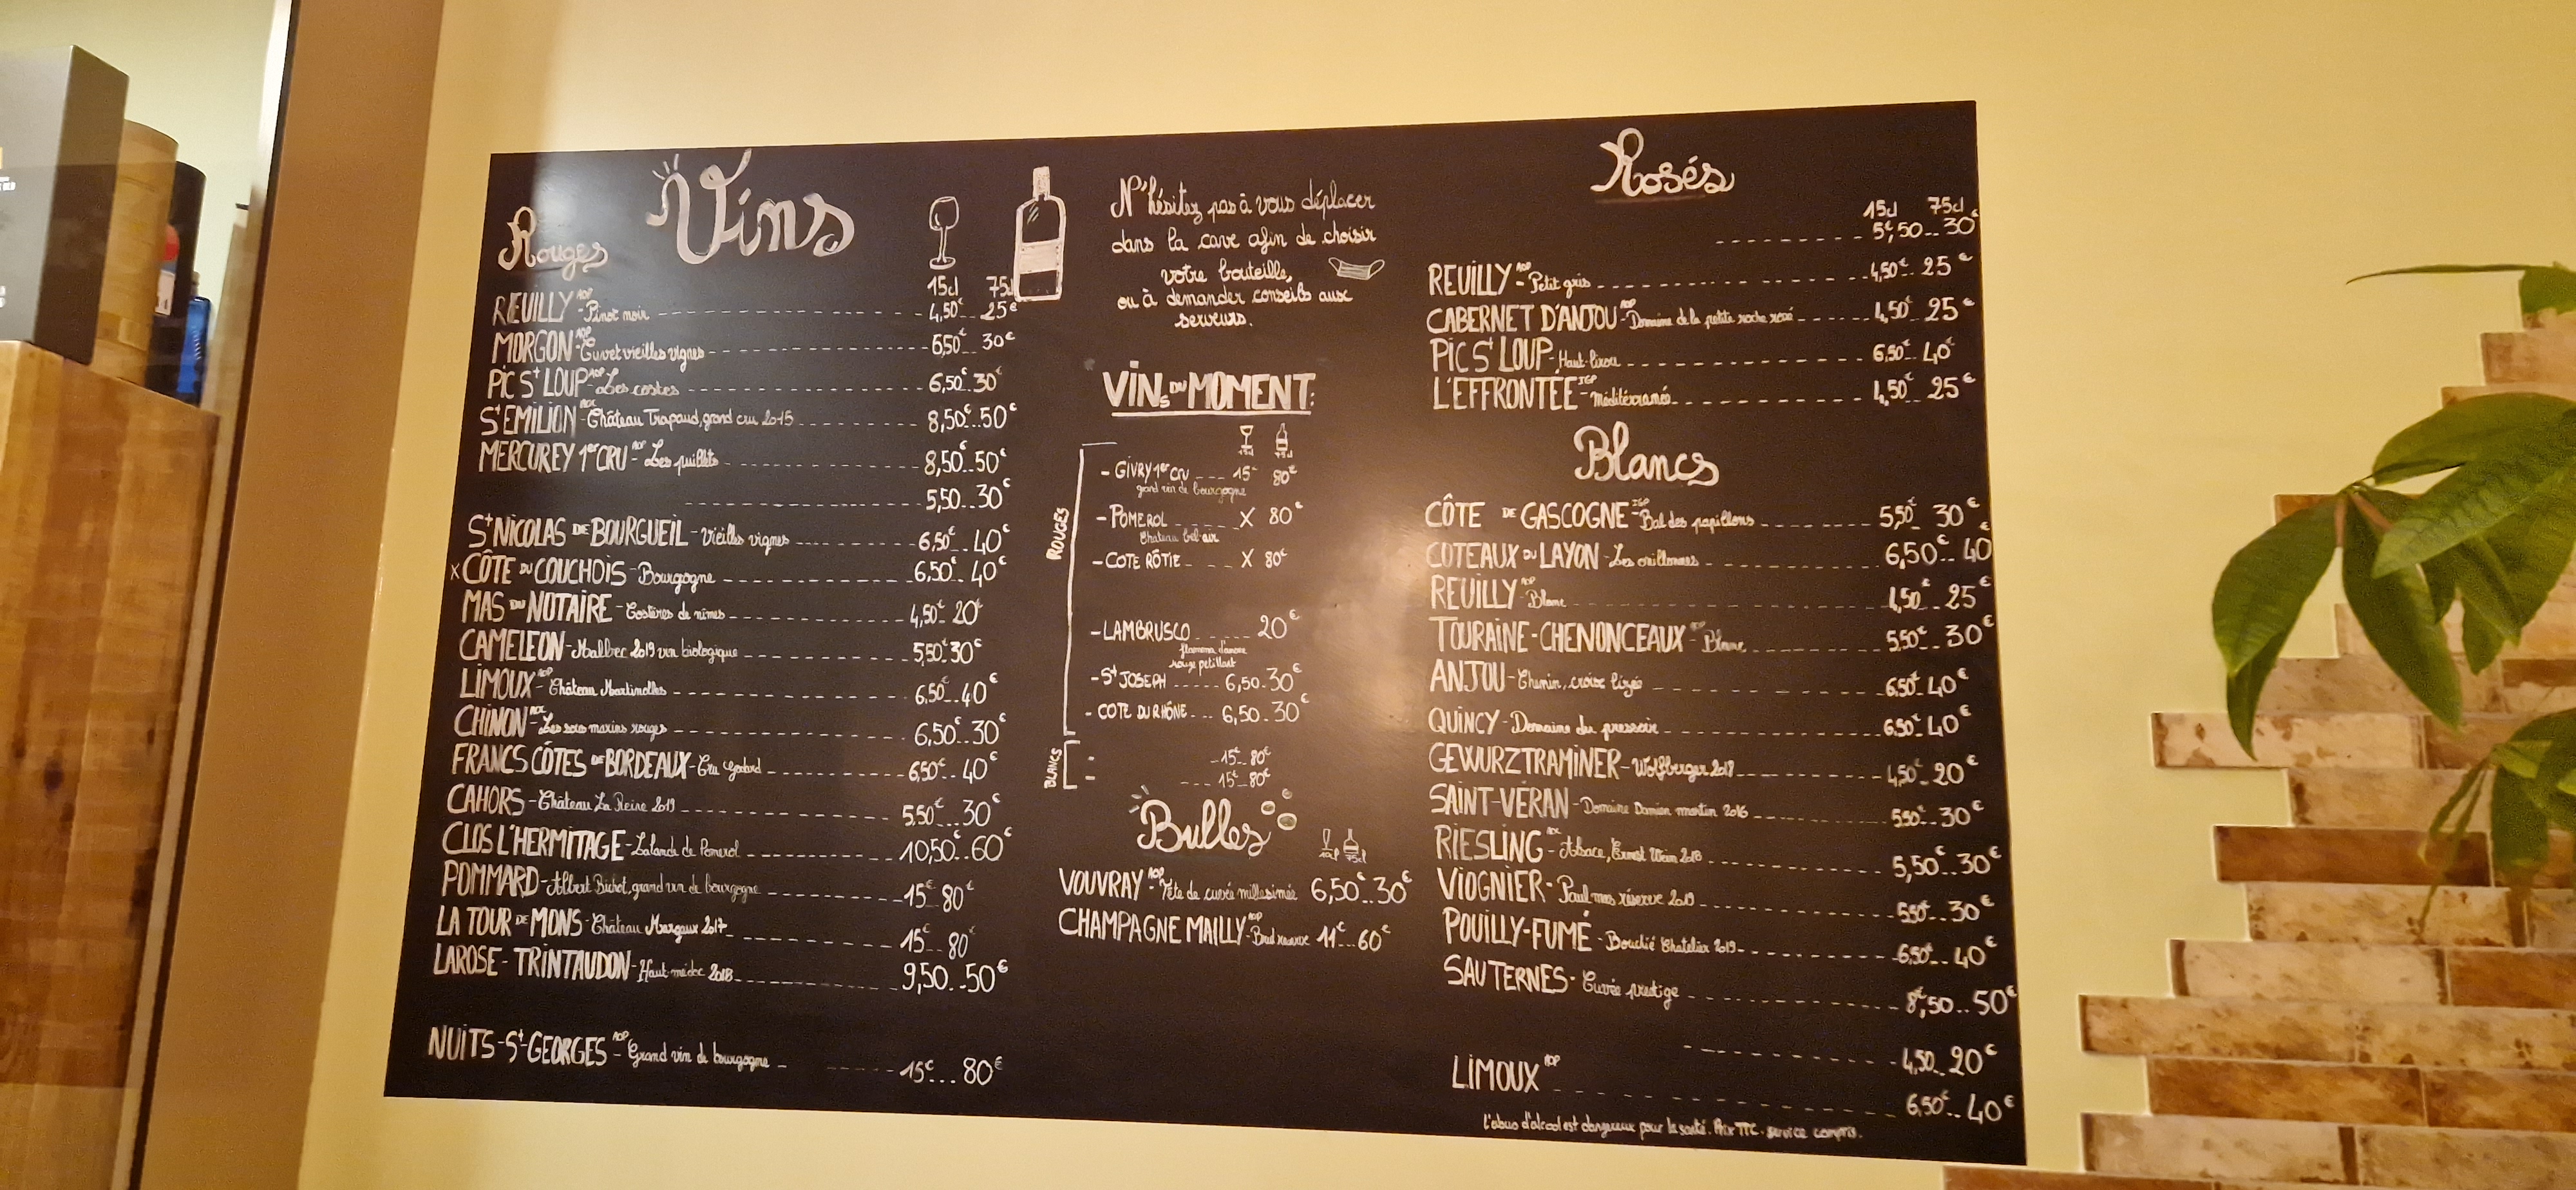 Vins
Rouges
15cl 75cl
REUILLY AOP - Pinot noir 4,50€ 25€
MORGON AOP - Cuvet vieilles vignes 5,50€ 30€
PIC St LOUP AOP - Les costes 6,50€ 30€
St EMILION AOC - Château Trapaud, grand cru 2015 8,50€ 50€
MERCUREY 1er CRU AOP - Les puillets 8,50€ 50€
5,50 30€
St NICOLAS DE BOURGUEIL - Vieilles vignes 6,50€ 40€
X CÔTE DU COUCHOIS - Bourgogne 6,50€ 40€
MAS DU NOTAIRE - Costières de nîmes 4,50€ 20€
CAMELEON - Malbec 2019 vin biologique 5,50€ 30€
LIMOUX AOP - Château Martinolles 6,50€ 40€
CHINON AOC - Les sous maxins rouges 6,50€ 30€
FRANCS CÔTES DE BORDEAUX - Cru Godard 6,50€ 40€
CAHORS - Château La Reine 2019 5,50€ 30€
CLOS L'HERMITAGE - Lalande de Pomerol 10,50€ 60€
POMMARD - Albert Bichot, grand vin de bourgogne 15€ 80€
LA TOUR DE MONS - Château Margaux 2017 15€ 80€
LAROSE - TRINTAUDON - Haut-médoc 2018 9,50 50€
NUITS-St-GEORGES AOP - Grand vin de bourgogne 15€ 80€
N'hésitez pas à vous déplacer
dans la cave afin de choisir
votre bouteille,
ou à demander conseils aux
serveurs.
VINs DU MOMENT:
ROUGES
15cl 75cl
- GIVRY 1er cru 15€ 80€
grand vin de bourgogne
- POMEROL X 80€
Chateau bel-air
- COTE RÔTIE X 80€
- LAMBRUSCO 20€
rouge petillant
- St JOSEPH 6,50 30€
- COTE DU RHÔNE 6,50 30€
BLANCS
- 15€ 80€
- 15€ 80€
Bulles
10cl 75cl
VOUVRAY AOP - Tête de cuvée millesimée 6,50€ 30€
CHAMPAGNE MAILLY AOP - Brut reserve 11€ 60€
Rosés
15cl 75cl
5€,50 30€
REUILLY AOP - Petit gris 4,50€ 25€
CABERNET D'ANJOU AOP - Domaine de la petite roche rosé 4,50€ 25€
PIC St LOUP - Haut-lirou 6,50€ 40€
L'EFFRONTÉE IGP - Méditérranée 4,50€ 25€
Blancs
CÔTE DE GASCOGNE IGP - Bal des papillons 5,50€ 30€
COTEAUX DU LAYON - Les orillonnes 6,50€ 40€
REUILLY AOP - Blanc 4,50€ 25€
TOURAINE-CHENONCEAUX AOP - Blanc 5,50€ 30€
ANJOU - Chenin, croix lizée 6,50€ 40€
QUINCY - Domaine du pressoir 6,50€ 40€
GEWURZTRAMINER - Wolfberger 2018 4,50€ 20€
SAINT-VÉRAN - Domaine Damien martin 2016 5,50€ 30€
RIESLING AOC - Alsace, Ernst Wein 2018 5,50€ 30€
VIOGNIER - Paul mas réserve 2019 5,50€ 30€
POUILLY-FUMÉ - Bouchié Chatelier 2019 6,50€ 40€
SAUTERNES - Cuvée prestige 8€,50 50€
4,50 20€
LIMOUX AOP 6,50€ 40€
L'abus d'alcool est dangereux pour la santé. Prix TTC. service compris.